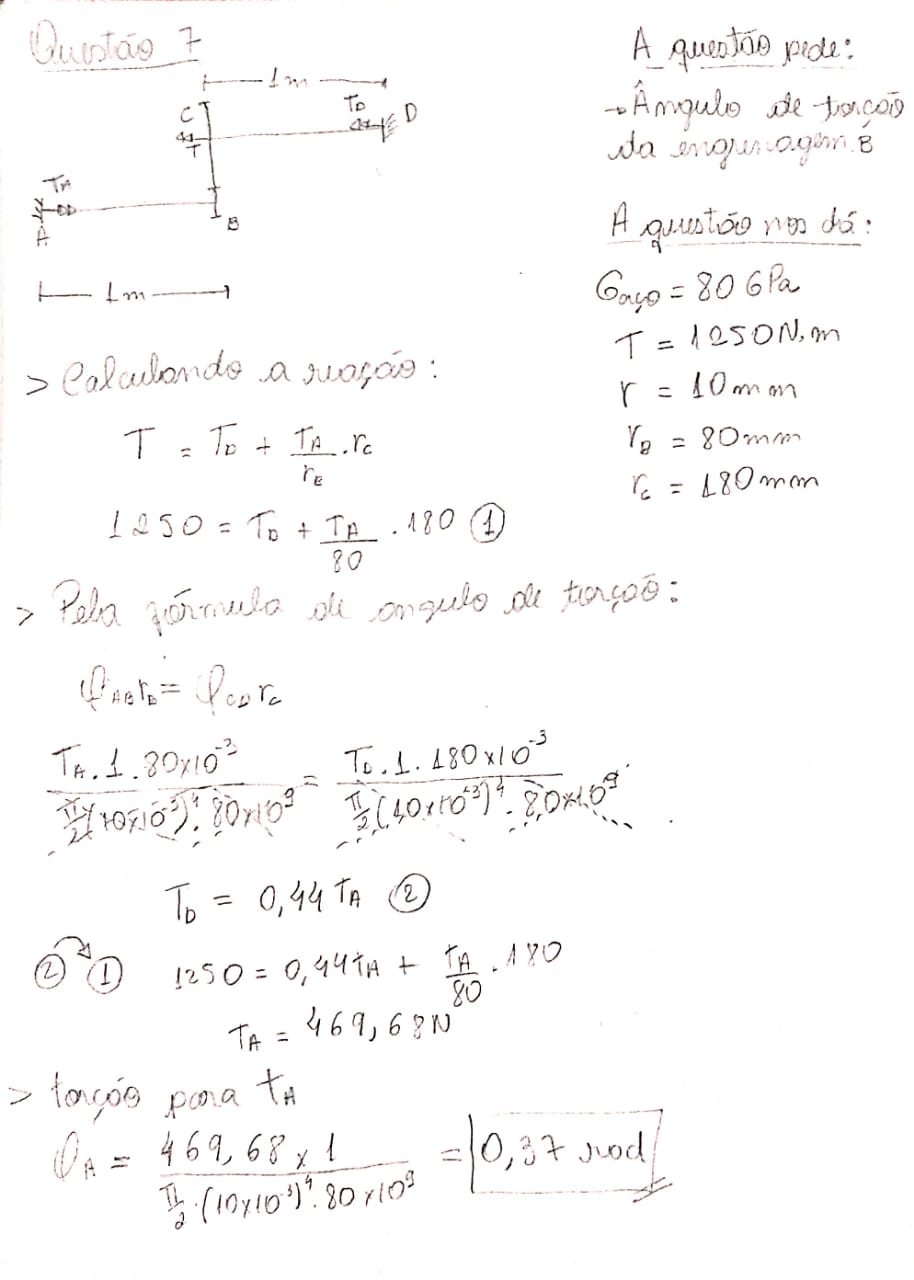 Questão 7
A questão pede:
→ Ângulo de torção
da engrenagem B
1m
C
T
TD
D
TA
A
B
1m
A questão nos dá:
Gaço = 80 GPa
T = 1250N.m
r = 10mm
rB = 80mm
rc = 180mm
> Calculando a reação:
T = TD + TA/rE .rc
1250 = TD + TA/80 . 180 ①
> Pela fórmula de angulo de torção:
φAB rB = φCD rc
TA . 1 . 80x10⁻³ / π/2 (10x10⁻³)⁴ . 80x10⁹ = TD . 1 . 180x10⁻³ / π/2 (10x10⁻³)⁴ . 80x10⁹
TD = 0,44 TA ②
② → ① 1250 = 0,44tA + tA/80 . 180
TA = 469,68N
> torção para tA
φA = 469,68 x 1 / π/2 . (10x10⁻³)⁴ . 80x10⁹ = 0,37 rad